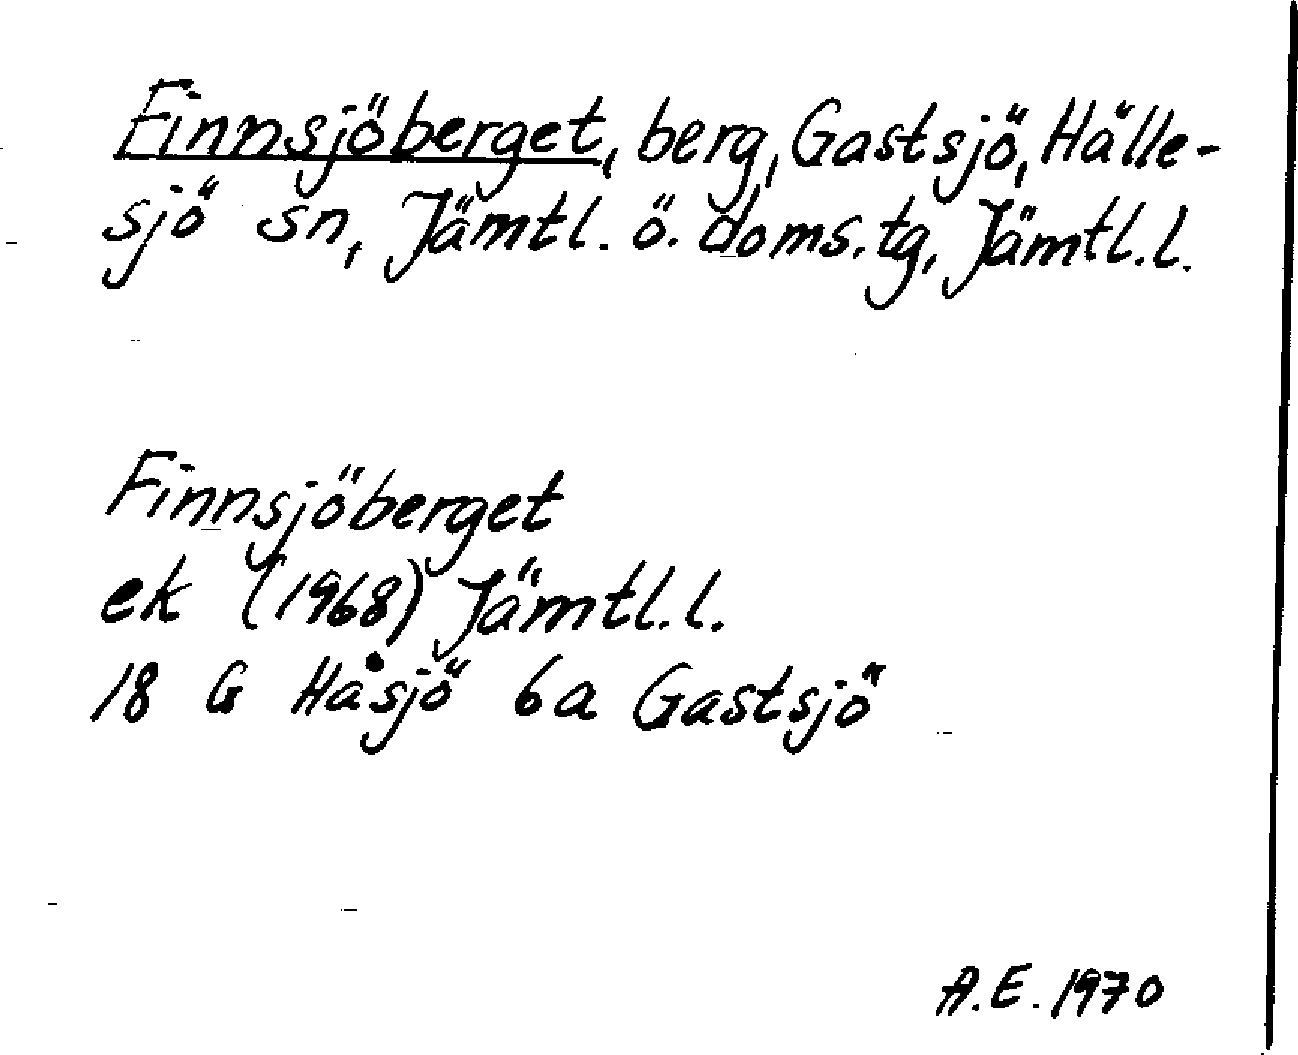 Finnsjöberget, berg, Gastsjö, Hälle-
sjö sn, Jämtl. ö. doms. tg, Jämtl. l.
Finnsjöberget
ek (1968) Jämtl. l.
18 G Håsjö 6a Gastsjö
A.E. 1970